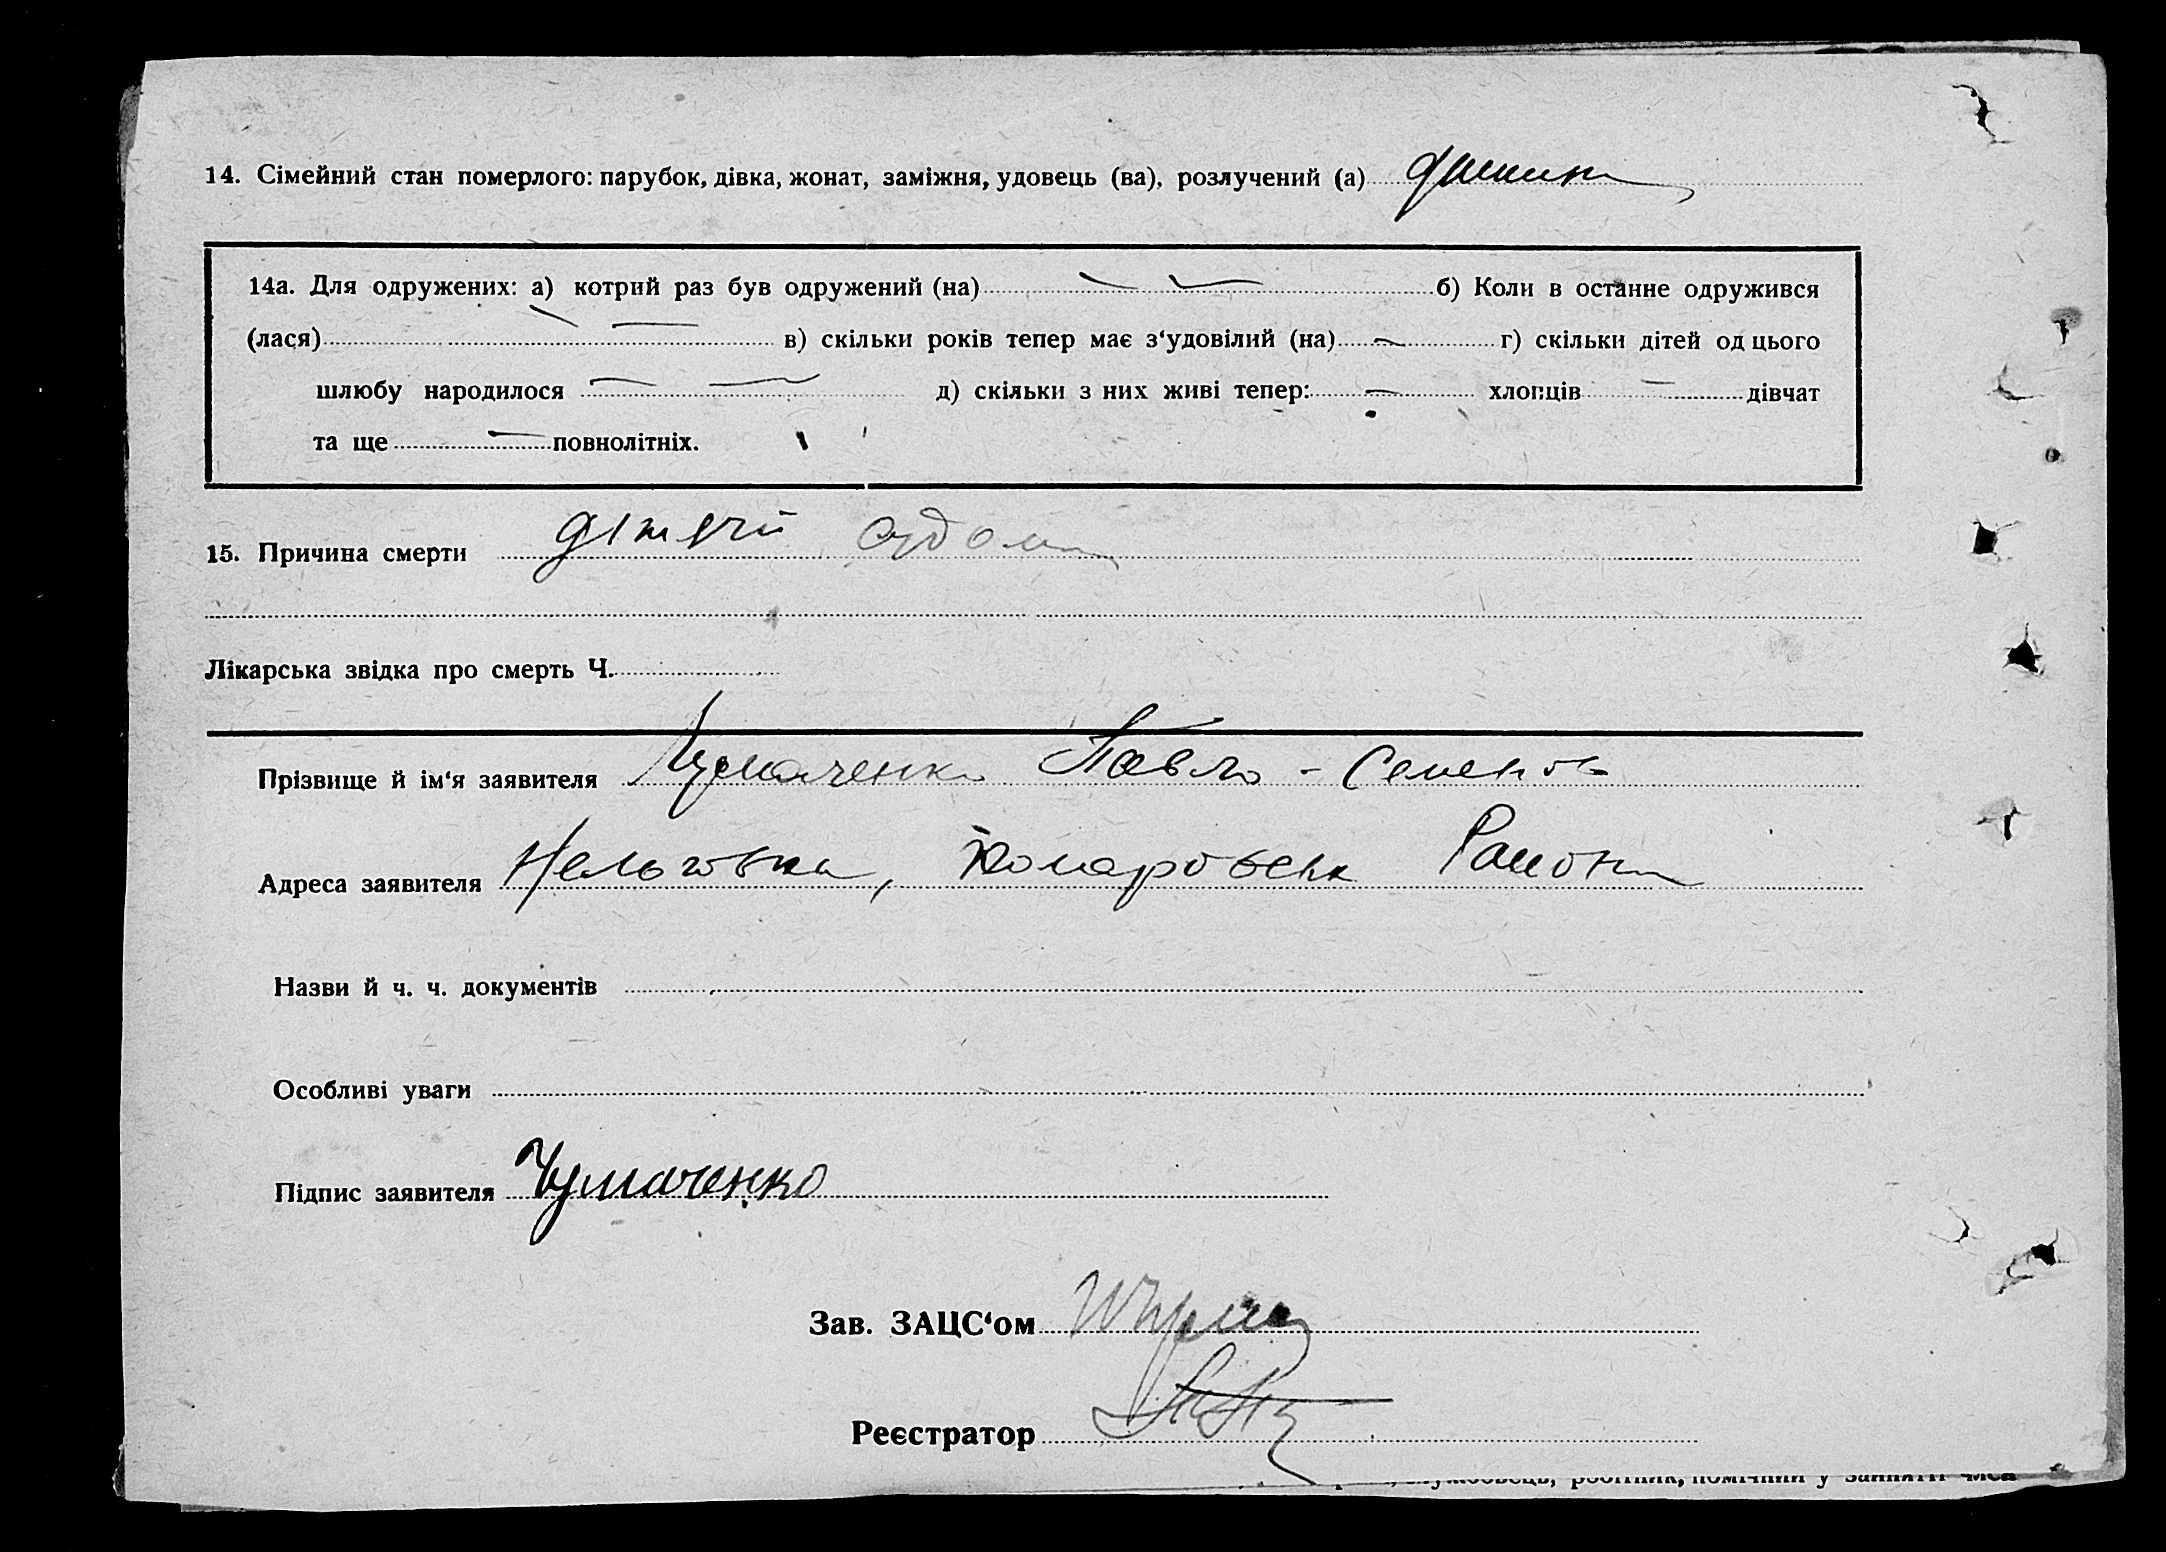 14. Сімейний стан померлого: парубок, дівка, жонат, заміжня, удовець (ва), розлучений (а)
14а. Для одружених: а) котрий раз був одружений (на) б) Коли в останнє одружився
(лася) в) скільки років тепер має з‘удовілий (на) г) скільки дітей од цього
шлюбу народилося д) скільки з них живі тепер: хлопців дівчат
та ще повнолітніх.
15. Причина смерти дитячи
Лікарська звідка про смерть Ч.
Прізвище й ім‘я заявителя Чумаченко Павло - Семенов
Адреса заявителя Нельговка, Комаровськ Району
Назви й ч. ч. документів
Особливі уваги
Підпис заявителя Чумаченко
Зав. ЗАЦС‘ом
Реєстратор
службовець, робітник, помічний у занятті член